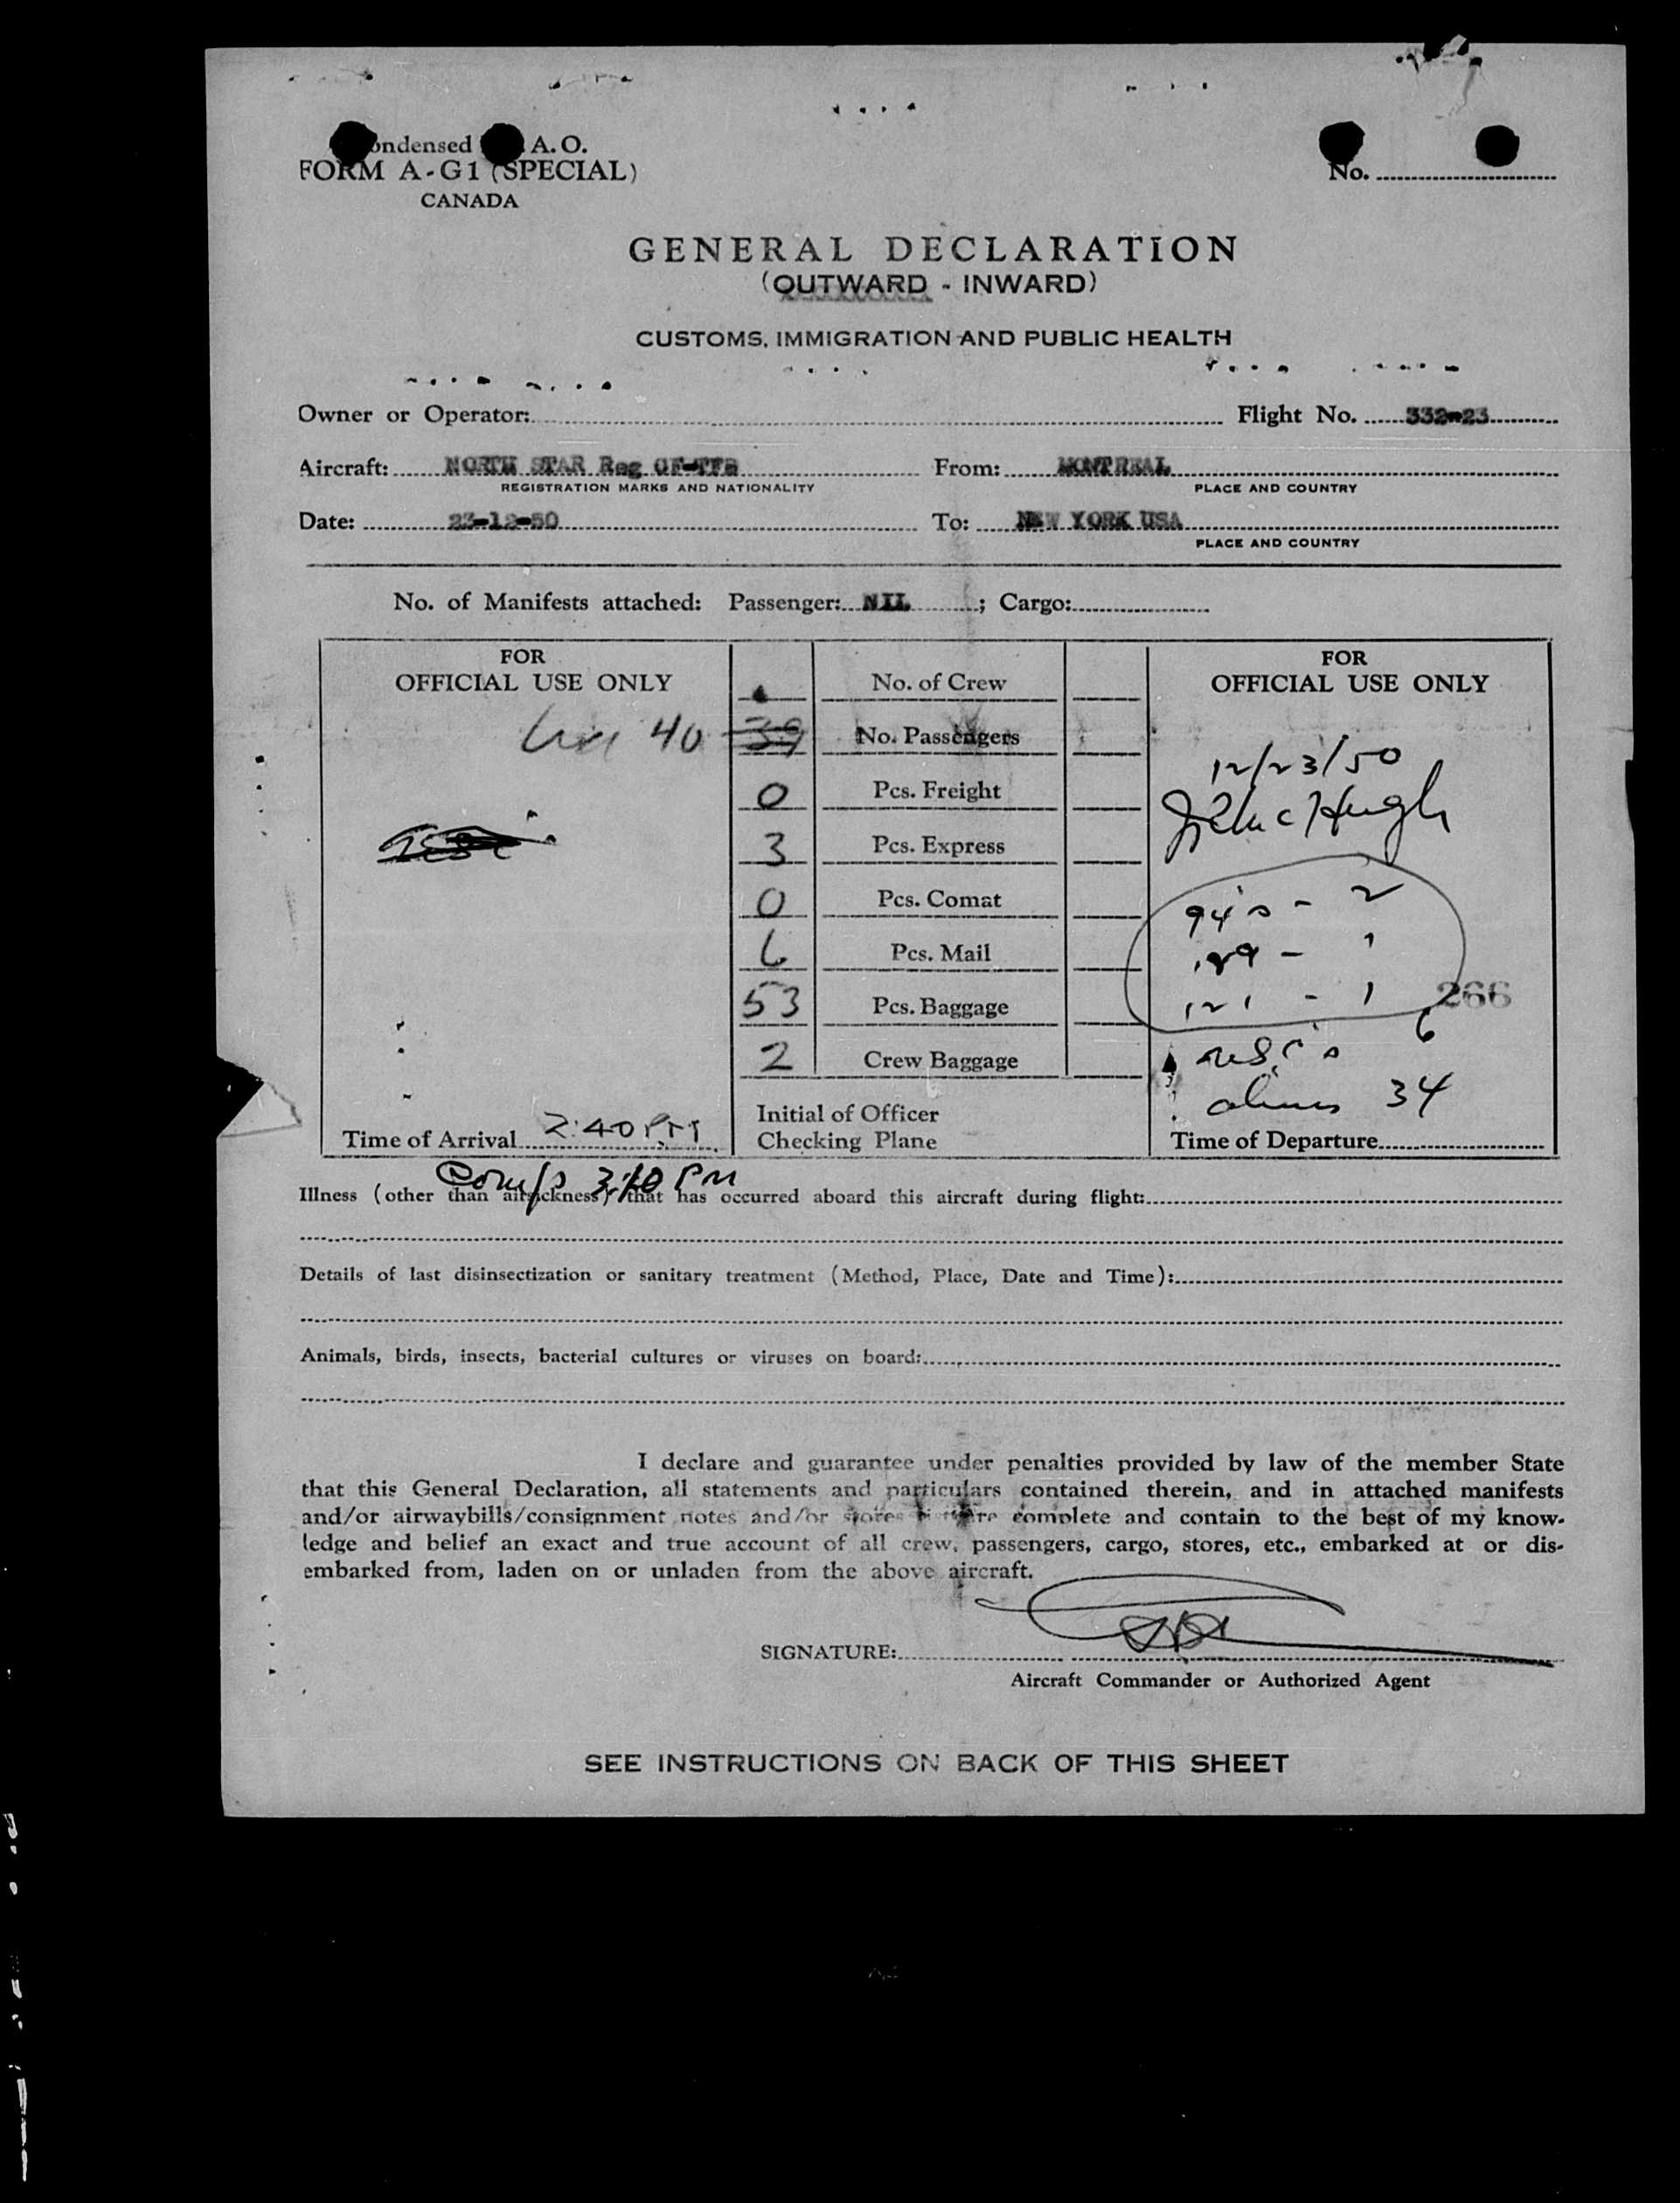 ondensed A. O.
FORM A-G1 (SPECIAL)
CANADA
No.
GENERAL DECLARATION
(OUTWARD - INWARD)
CUSTOMS, IMMIGRATION AND PUBLIC HEALTH
Owner or Operator: Flight No. 332-23
Aircraft: NORTH STAR Reg CF-TFB From: MONTREAL
REGISTRATION MARKS AND NATIONALITY PLACE AND COUNTRY
Date: 23-12-50 To: NEW YORK USA
PLACE AND COUNTRY
No. of Manifests attached: Passenger: NIL ; Cargo:
FOR
OFFICIAL USE ONLY
40
Time of Arrival 2:40 PM
No. of Crew
39 No. Passengers
0 Pcs. Freight
3 Pcs. Express
0 Pcs. Comat
6 Pcs. Mail
53 Pcs. Baggage
2 Crew Baggage
Initial of Officer
Checking Plane
FOR
OFFICIAL USE ONLY
12/23/50
94's - 2
- 1
121 - 1
266
6
34
Time of Departure
3:10 PM
Illness (other than airsickness) that has occurred aboard this aircraft during flight:
Details of last disinsectization or sanitary treatment (Method, Place, Date and Time):
Animals, birds, insects, bacterial cultures or viruses on board:
I declare and guarantee under penalties provided by law of the member State
that this General Declaration, all statements and particulars contained therein, and in attached manifests
and/or airwaybills/consignment notes and/or stores are complete and contain to the best of my know-
ledge and belief an exact and true account of all crew, passengers, cargo, stores, etc., embarked at or dis-
embarked from, laden on or unladen from the above aircraft.
SIGNATURE:
Aircraft Commander or Authorized Agent
SEE INSTRUCTIONS ON BACK OF THIS SHEET